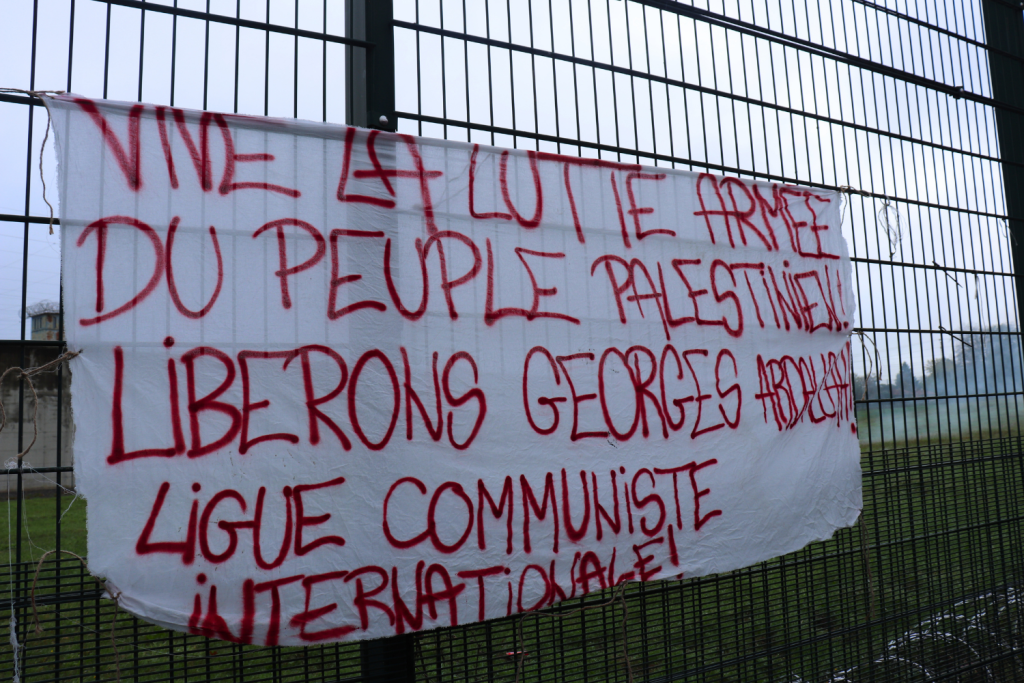 VIVE LA LUTTE ARMÉE
DU PEUPLE PALESTINIEN!
LIBERONS GEORGES ABDALLAH!
LIGUE COMMUNISTE
INTERNATIONALE!